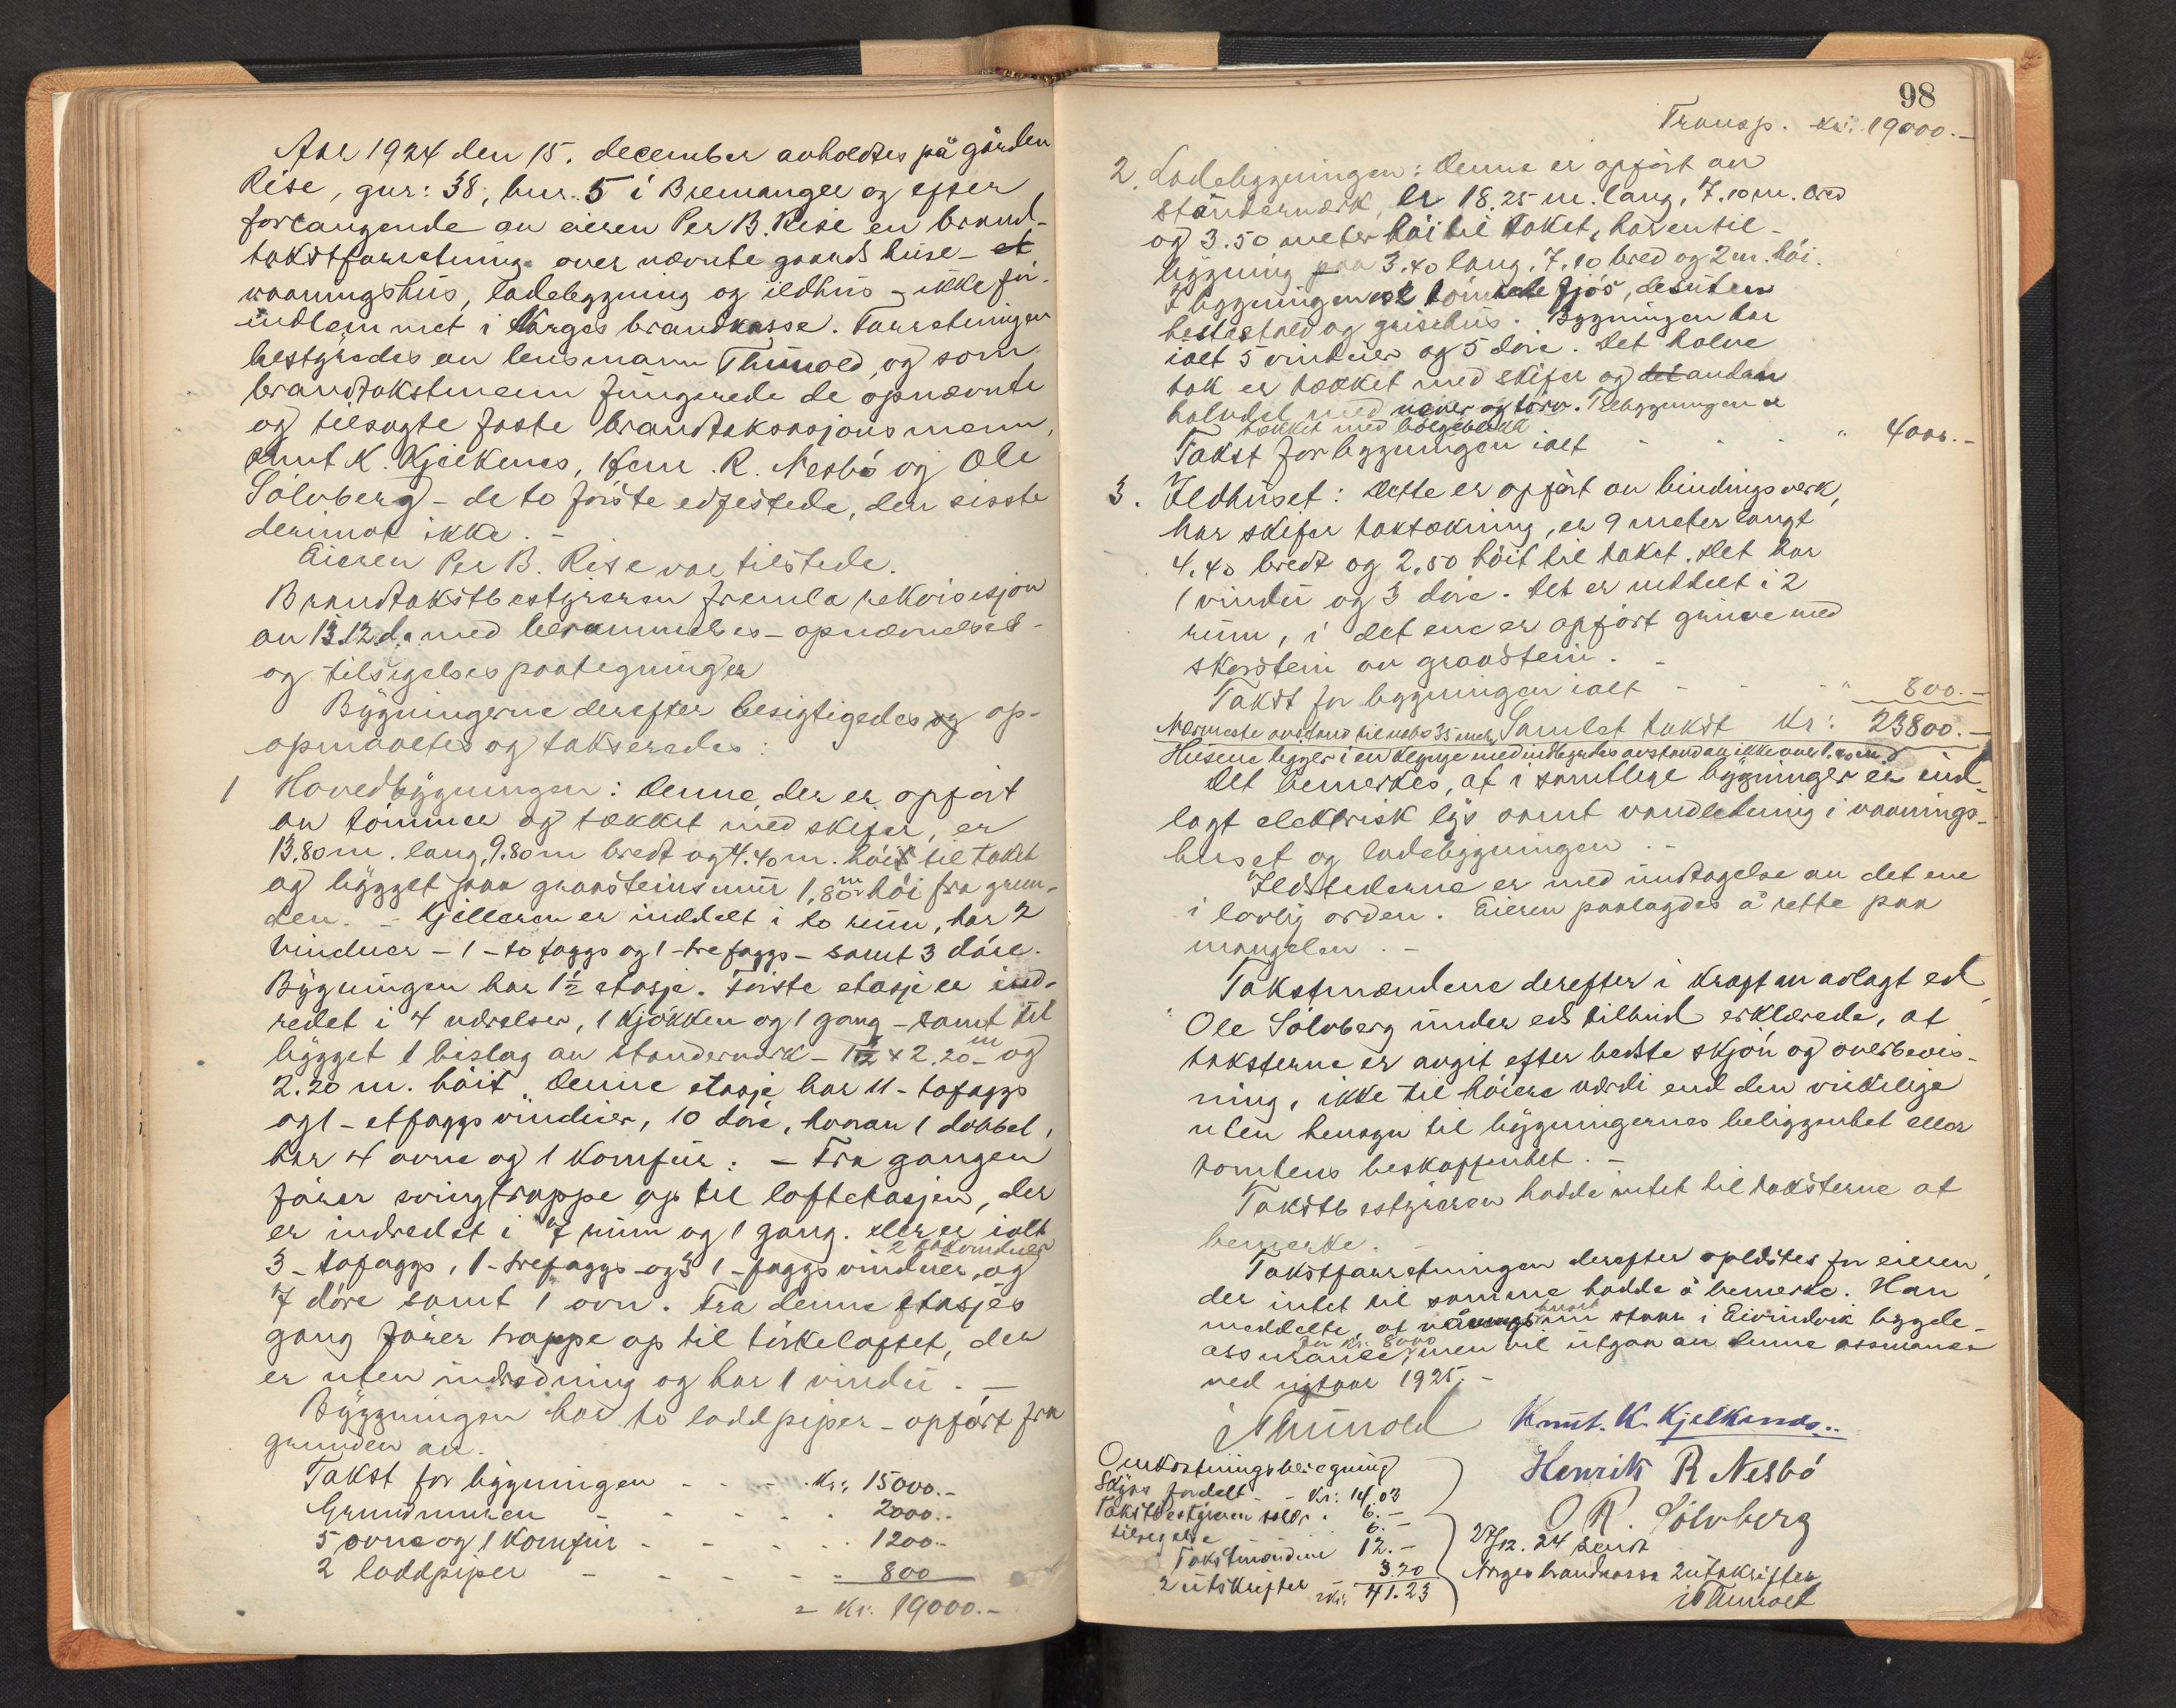 Aar 1924 den 15. december avholdtes på gården
Rise, gnr: 38, bnr. 5 i Bremanger og efter
forlangende av eieren Per B. Rise en brand-
takstforretning over nævnte gaards huse - et
vaaningshus, ladebygning og ildhus - ikke før
indlemmet i Norges brandkasse. Forretningen
bestyredes av lensmann Thunold, og som
brandtakstmenn fungerede de opnævnte
og tilsagte faste brandtaksasjonsmenn,
Knut K. Kjelkenes, Henr. R. Nesbö og Ole
Sölvberg - de to förste edfestede, den sisste
derimot ikke. -
Eieren Per B. Rise var tilstede.
Brandtakstbestyreren fremla rekvisisjon
av 13.12 d. a. med berammelses - opnævnelses-
og tilsigelsespaategninger
Bygningerne derefter besigtigedes og op-
opmaaltes og takseredes:
1 Hovedbygningen: Denne, der er opfört
av tömmer og tækket med skifer, er
13.80 m. lang, 9.80 m bredt og 4.40 m. höit til taket
og bygget paa graasteinsmur 1,80 m höi fra grun-
den. - Kjelleren er inddelt i to rum, har 2
vinduer - 1 - to faggs og 1 - trefaggs - samt 3 döre.
Bygningen har 1½ etasje. Förste etasje er ind-
redet i 4 værelser, 1 kjökken og 1 gang - samt til
bygget 1 bislag av standerverk - 1½ x 2.20 m og
2.20 m. höit. Denne etasje har 11 - tofaggs
og 1 - etfaggs vinduer, 10 döre, hvorav 1 dobbel,
har 4 ovne og 1 komfur. - Fra gangen
förer svingtrappe op til loftetasjen, der
er indredet i 7 rum og 1 gang. Her er ialt
3 - tofaggs, 1 - trefaggs og 3 1 - faggs vinduer, 2 takvinduer og
7 döre samt 1 ovn. Fra denne etasjes
gang förer trappe op til törkeloftet, der
er uten indredning og har 1 vindu. -
Byggningen har to loddpiper - opfört fra
grunden av.
Takst for bygningen - - - - Kr: 15000.-
Grundmuren - - - - 2000.-
5 ovne og 1 komfur - - - - 1200.-
2 loddpiper - - - - - " 800
= Kr. 19000.-
98
Transp. kr: 19000.-
2. Ladebygningen: Denne er opfört av
ständerverk, er 18.25 m. lang, 7.10 m. bred
og 3.50 meter höi til taket, har en til-
bygning paa 3.40 lang, 7.10 bred og 2 m. höi.
I bygningen er tömret fjös, desuten
hestestald og grisehus. Bygningen har
ialt 5 vinduer og 5 döre. Det halve
tak er tækket med skifer og det andan
halvdel med never og torv. Tilbygningen er
tækket med bölgeblikk
Takst for bygningen ialt - - - " 4000.-
3. Ildhuset: Dette er opfört av bindingsverk,
har skifer taktækning, er 9 meter langt
4.40 bredt og 2.50 höit til taket. Det har
1 vindu og 3 döre. Det er inddelt i 2
rum, i det ene er opfört grue med
skorstein av graastein. -
Takst for bygningen ialt - - - " 800.-
Nærmeste avstand til nabo 35 meter, Samlet takst Kr: 23800.-
Husene ligger i en klynge med indbyrdes avstand av ikke over 1.40 m.
Det bemerkes, at i samtlige bygninger er ind-
lagt elektrisk lys samt vandledning i vaanings-
huset og ladebygningen. -
Ildstederne er med undtagelse av det ene
i lovlig orden. Eieren paalagdes å rette paa
mangelen. -
Takstmændene derefter i kraft av avlagt ed,
Ole Sölvberg under eds tilbud erklærede, at
taksterne er avgit efter bedste skjön og overbevis-
ning, ikke til höiere værdi end den virkelige
uten hensyn til bygningernes beliggenhet eller
tomtens beskaffenhet. -
Takstbestyreren hadde intet til taksterne at
bemerke. -
Takstforretningen derefter oplästes for eieren,
der intet til samme hadde å bemerke. Han
meddelte, at våningshuset staar i Eivindvik bygde-
assurance, for kr. 8000 men vil utgaa av denne assurance
ved nyttaar 1925. -
Thunold Knut. K. Kjelkenes..
Henrik R Nesbö
O R. Sölvberg
Omkostningsberegning
Skyss fordelt - - Kr: 14.03
Takstbestyreren saler . 6.-
tilsigelse 6.-
Takstmændene 12.-
2 utskrifter 3.20
= kr. 41.23
27/12. 24 sendt
Norges brandkasse 2 utskrifter
Thunold